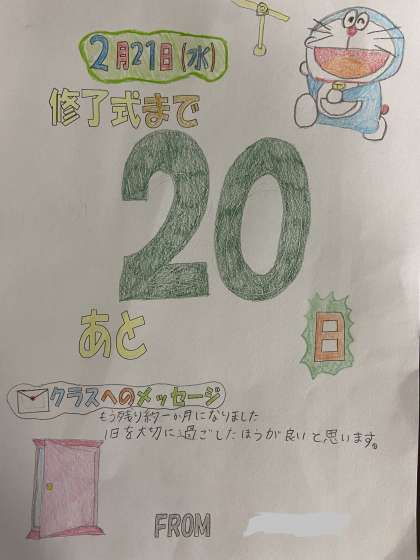 2月21日(水)
修了式まで
20
あと
日
クラスへのメッセージ
もう残り約一か月になりました
1日を大切に過ごしたほうが良いと思います。
FROM